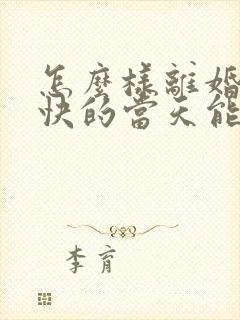 怎麼樣離婚
快的當天能
李育